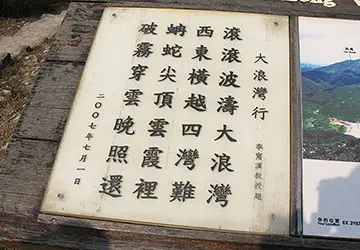 大浪灣行
李甯漢教授題
滾滾波濤大浪灣
西東橫越四灣難
蚺蛇尖頂雲霞裡
破霧穿雲晚照還
二〇〇七年七月一日
你的位置